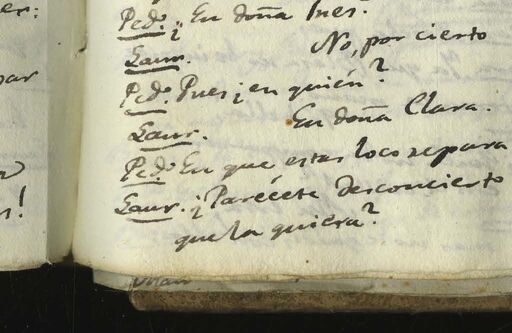 er:
Ped.º ¿En doña Ines.
Laur. No, por cierto
Ped.º Pues ¿en quién?
Laur. En doña Clara.
par
Ped.º En que estas loco repara
Laur. ¿Parécete desconcierto
s!
que la quiera?